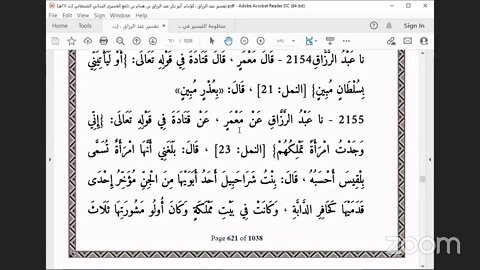 تفسير عبد الرزاق، للإمام أبو بكر عبد الرزاق بن همام بن نافع الحميري اليماني الصنعاني.pdf - Adobe Acrobat Reader DC (64-bit)
2154- نا عَبْدُ الرَّزَّاقِ قَالَ مَعْمَر ، قَالَ قَتَادَةَ فِي قَوْلِهِ تَعَالَى: {أَوْ لَيَأْتِيَنِّي
بِسُلْطَانٍ مُبِينٍ} [النمل: 21] ، قَالَ: «بِعُذْرٍ مُبِينٍ»
2155 - نا عَبْدُ الرَّزَّاقِ عَنْ مَعْمَرٍ ، عَنْ قَتَادَةَ فِي قَوْلِهِ تَعَالَى: {إِنِّي
وَجَدْتُ امْرَأَةً تَمْلِكُهُمْ} [النمل: 23] ، قَالَ: بَلَغَنِي أَنَّهَا امْرَأَةٌ تُسَمَّى
بِلْقِيسَ أَحْسَبُهُ ، قَالَ: بِنْتُ شَرَاحِيلَ أَحَدُ أَبَوَيْهَا مِنَ الْجِنِّ مُؤَخَّرُ إِحْدَى
قَدَمَيْهَا كَحَافِرِ الدَّابَّةِ ، وَكَانَتْ فِي بَيْتِ مَمْلَكَةٍ وَكَانَ أُولُو مَشُورَتِهَا ثَلَاثَ
Page 621 of 1038
zoom